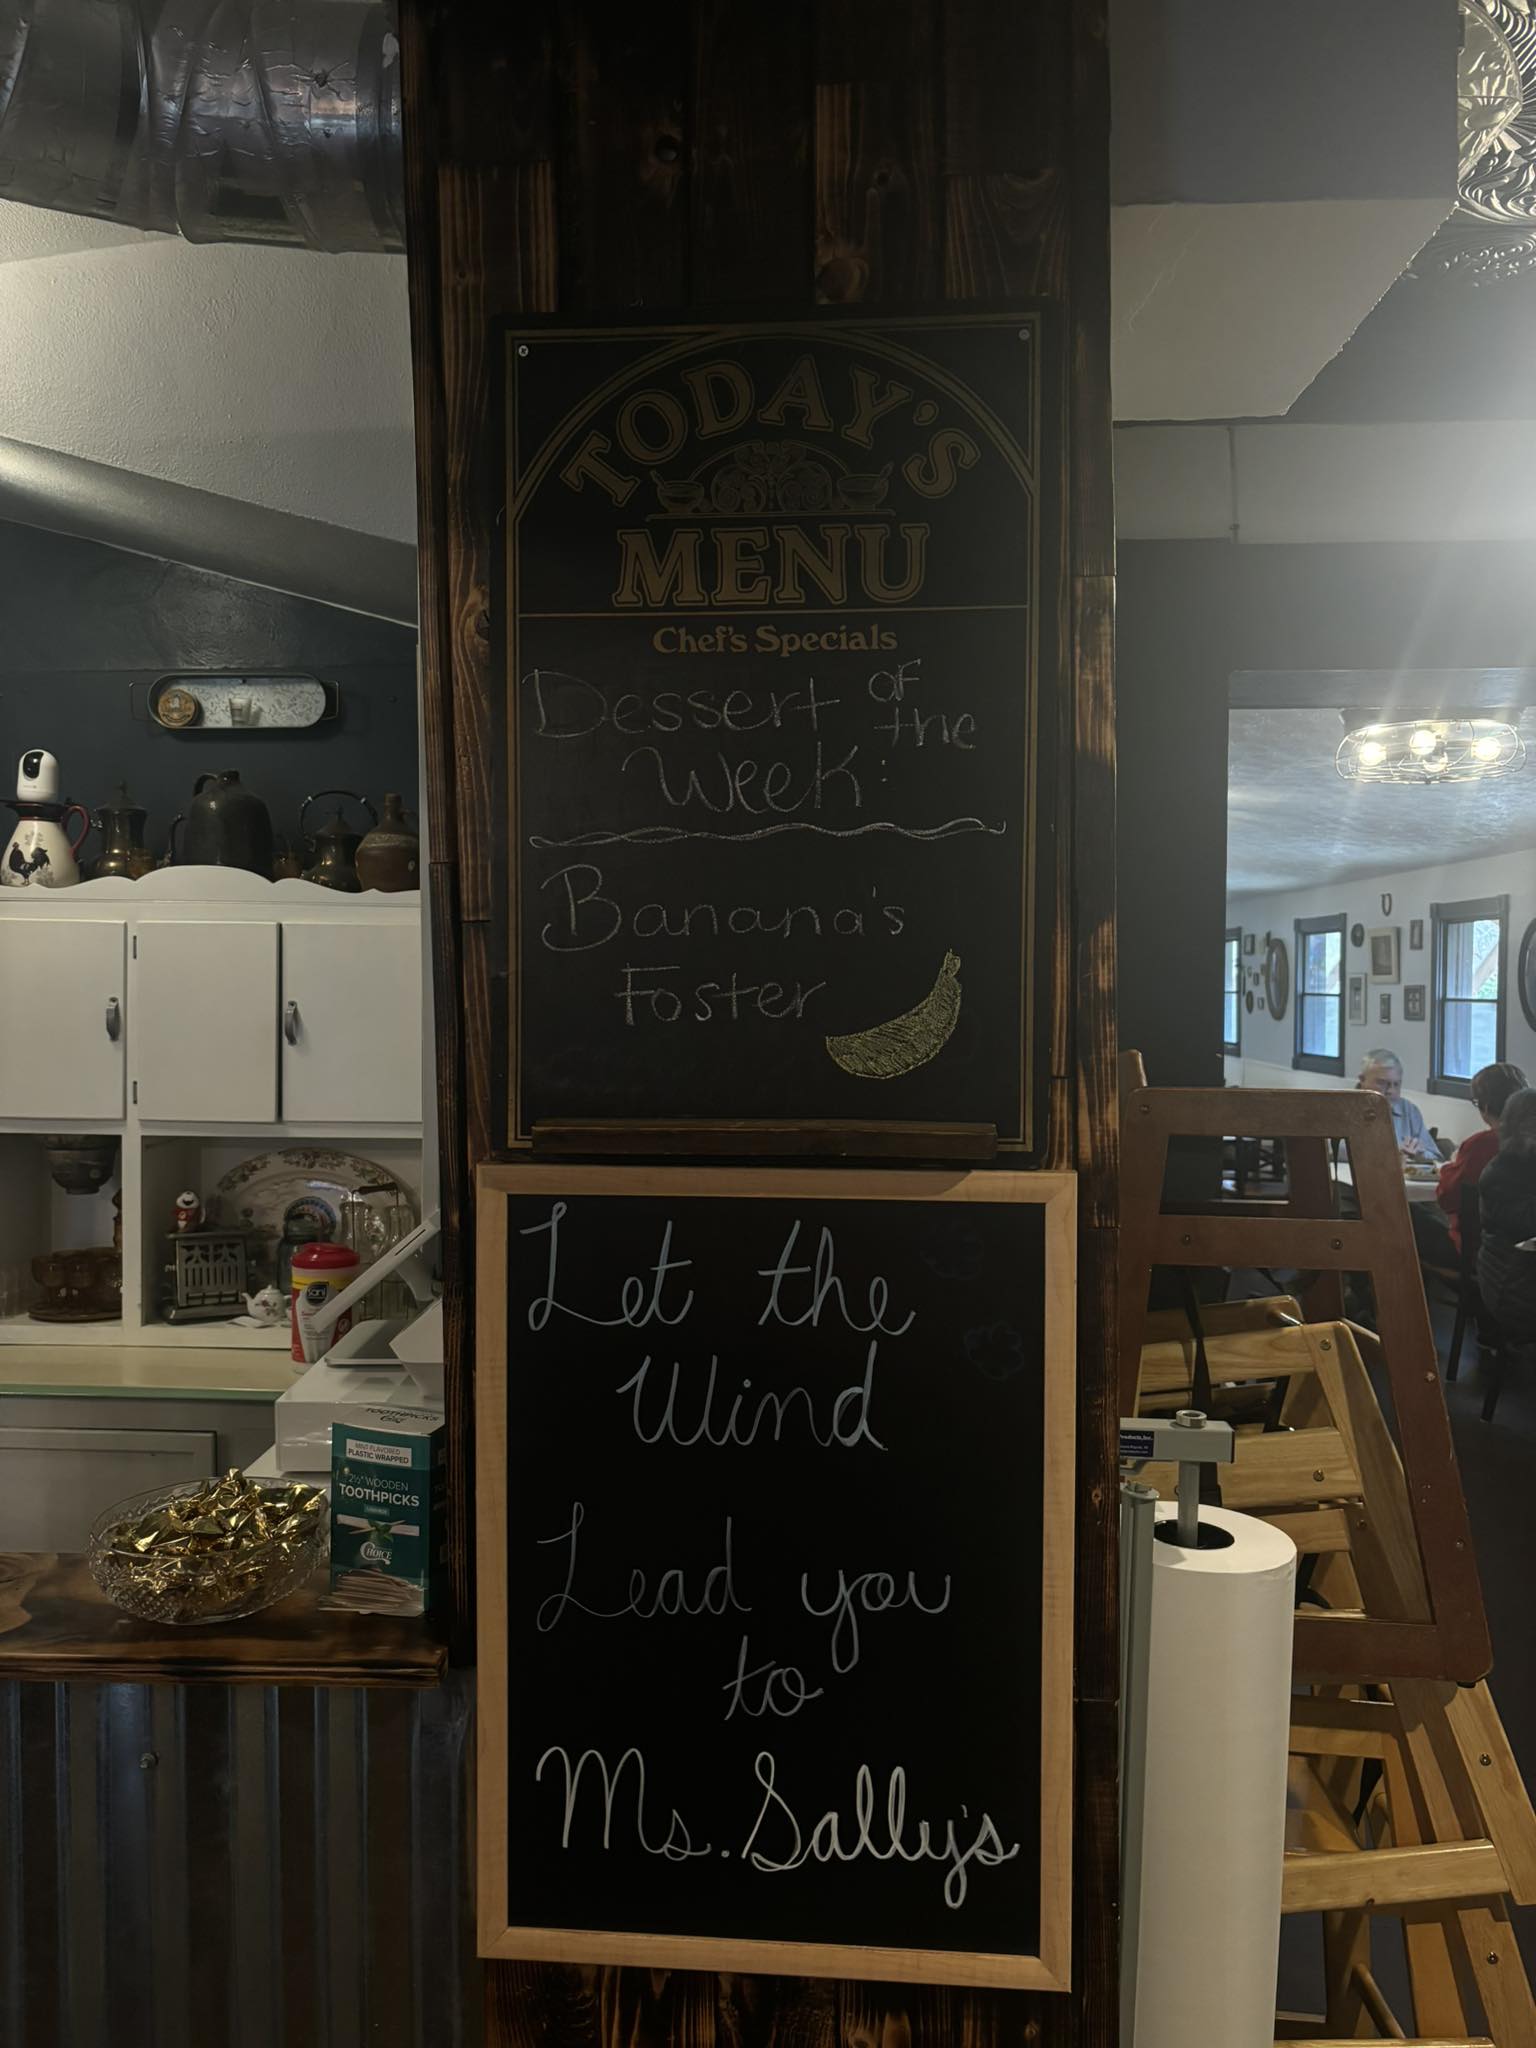 TODAY'S
MENU
Chef's Specials
Dessert of
the
Week:
Banana's
Foster
Let the
Wind
Lead you
to
Ms. Sally's
TOOTHPICKS
MINT FLAVORED
PLASTIC WRAPPED
2½" WOODEN
TOOTHPICKS
CHOICE
Sani
Products, Inc.